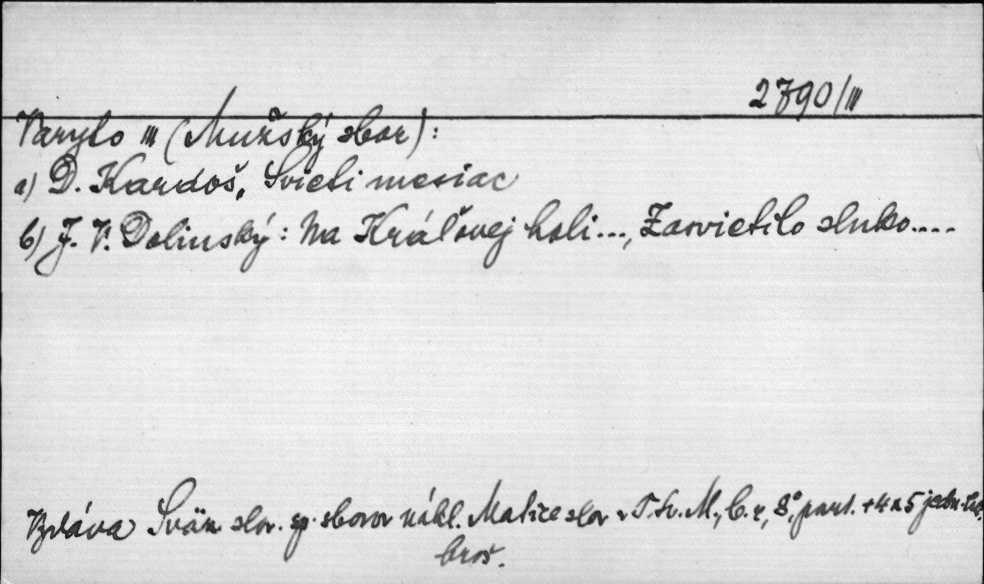 2790/III
Varyto III (Mužský sbor):
a) D. Kardoš, Svieti mesiac
b) J. V. Dolinský: Na Kráľovej holi..., Zasvietilo slnko....
Vydáva Sväz slov. sp. sborov nákl. Matice slov v T. Sv. M., b. r., 8°, part. + 4 a 5 jedn. list.
brož.